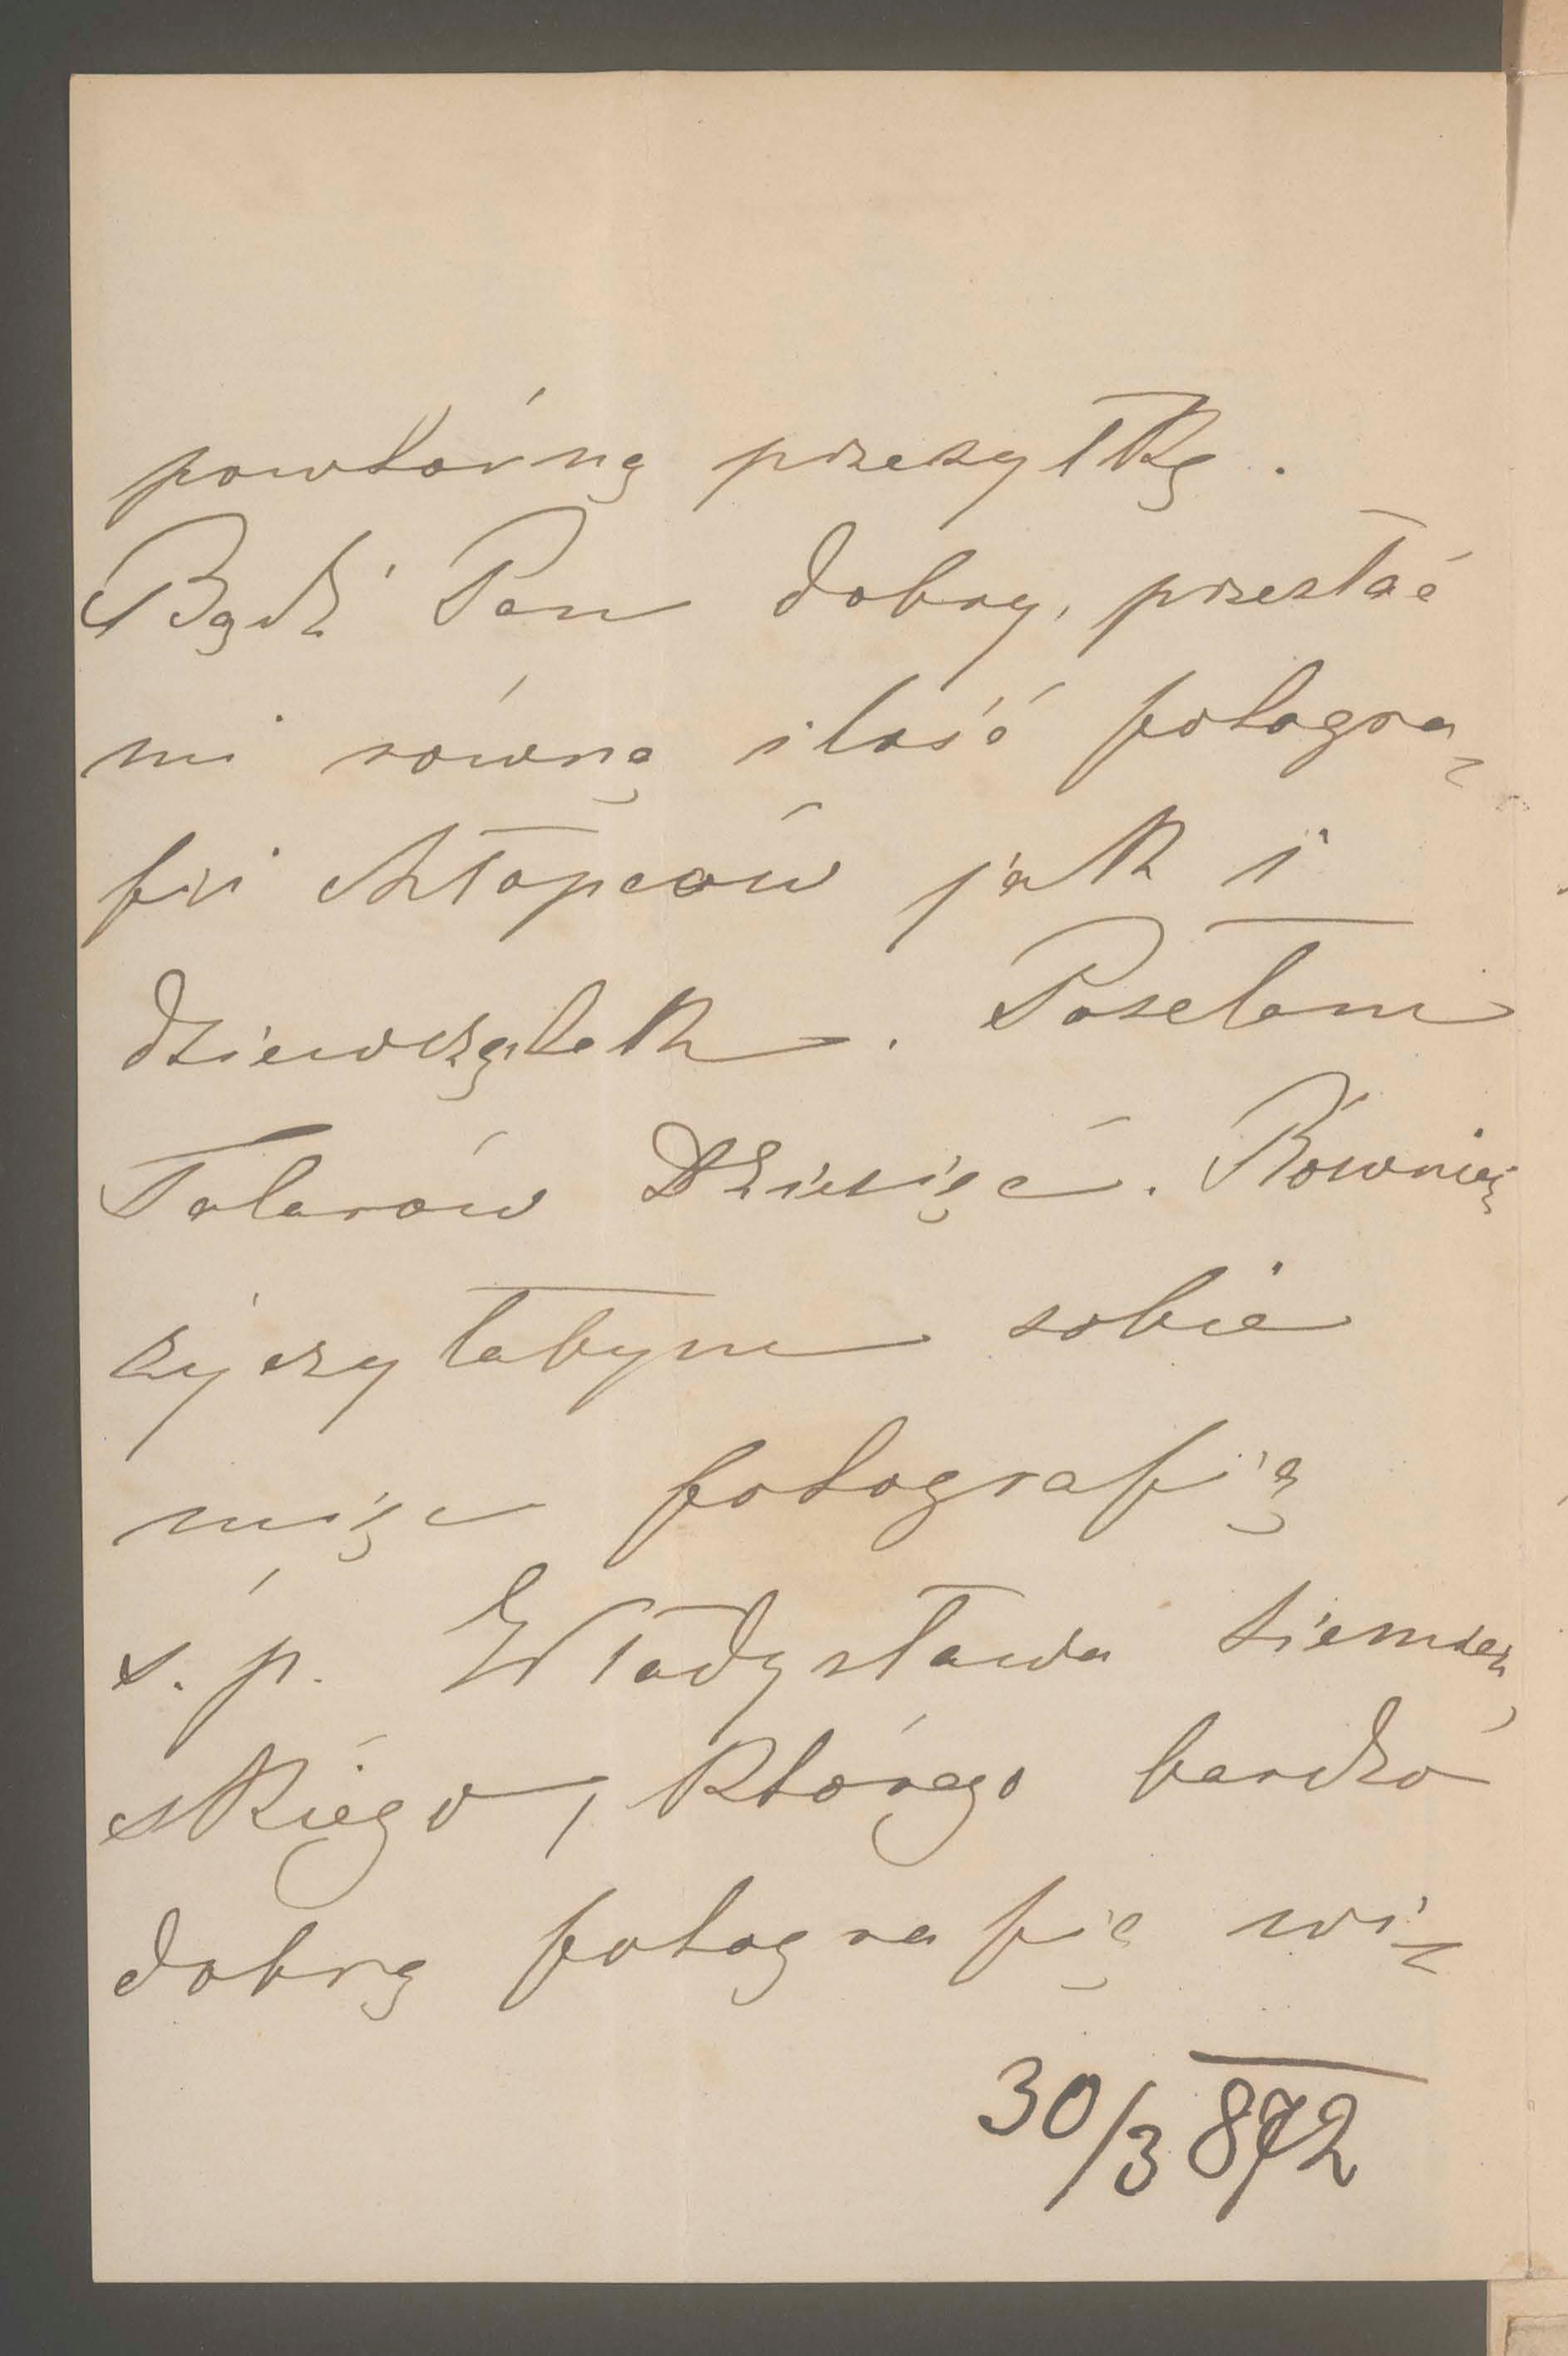 powtórną przesyłkę.
Bądź Pan dobry, przesłać
mi równą ilość fotogra-
fii chłopców jak i
dziewczątek. Posełam
Talarów Dziesięć. Również
życzyłabym sobie
mięc fotografię
ś. p. Władysława
skiego, którego bardzo
dobrą fotografię wi-
30/3 872